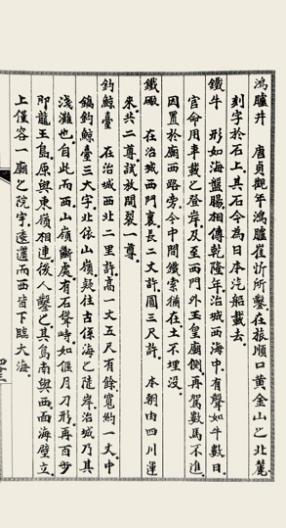 鴻臚井　唐貞觀年鴻臚崔忻所鑿在旅順口黃金山之北麓
刻字於石上其石今為日本汽船載去
鐵牛　形如海盤腸相傳乾隆年治城西海中有聲如牛數日
官命用車載之登岸及至西門外玉皇廟側再駕數馬不進
因置於廟西路旁今中間鐵索猶在土不埋沒
鐵礮　在治城西門裏長二丈許圓三尺許　本朝由四川運
來共二尊試放開裂一尊
釣鯨臺　在治城西北二里許高一丈五尺有餘寬約一丈中
鐫釣鯨臺三大字北依山嶺疑往古係海之陡岸治城乃其
淺灘也自此而西山嶺斷處有石聳峙如偃月刀形再百步
即龍王島原與東嶺相連後人鑿之其島南與西面海壁立
上僅容一廟之院宇遠還而西皆下臨大海